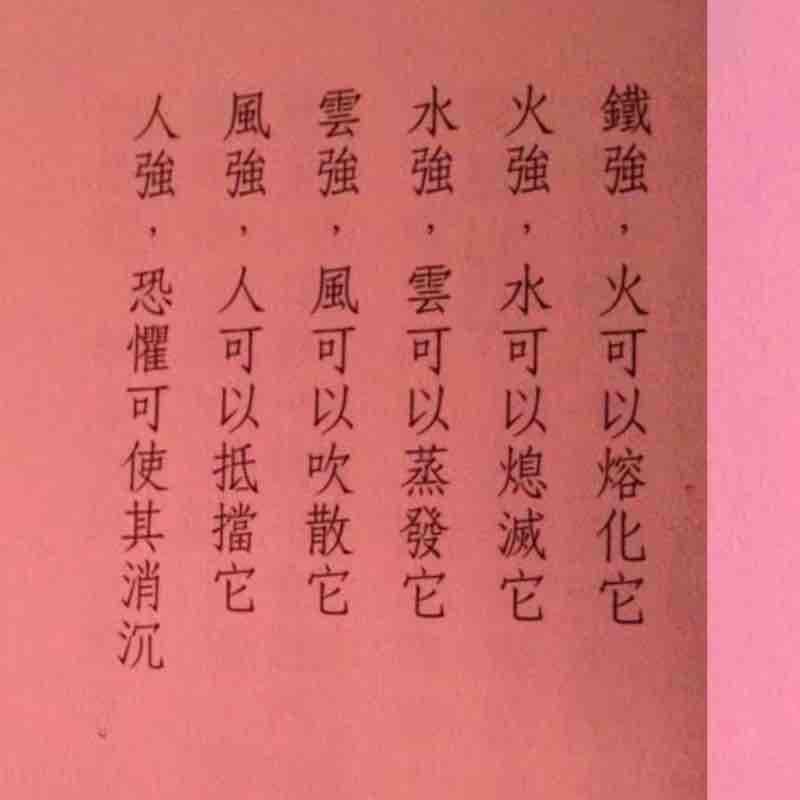 鐵強，火可以熔化它
火強，水可以熄滅它
水強，雲可以蒸發它
雲強，風可以吹散它
風強，人可以抵擋它
人強，恐懼可使其消沉